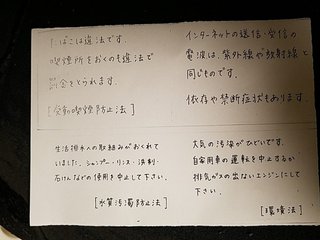 たばこは違法です。
喫煙所をおくのも違法で
罰金をとられます。
[受動喫煙防止法]
インターネットの送信・受信の
電波は、紫外線や放射線と
同じものです。
依存や禁断症状もあります。
生活排水への取組みがおくれて
いました。シャンプー・リンス・洗剤・
石けんなどの使用を中止して下さい。
[水質汚濁防止法]
大気の汚染がひどいです。
自家用車の運転を中止するか
排気ガスの出ないエンジンにして
下さい。
[環境法]